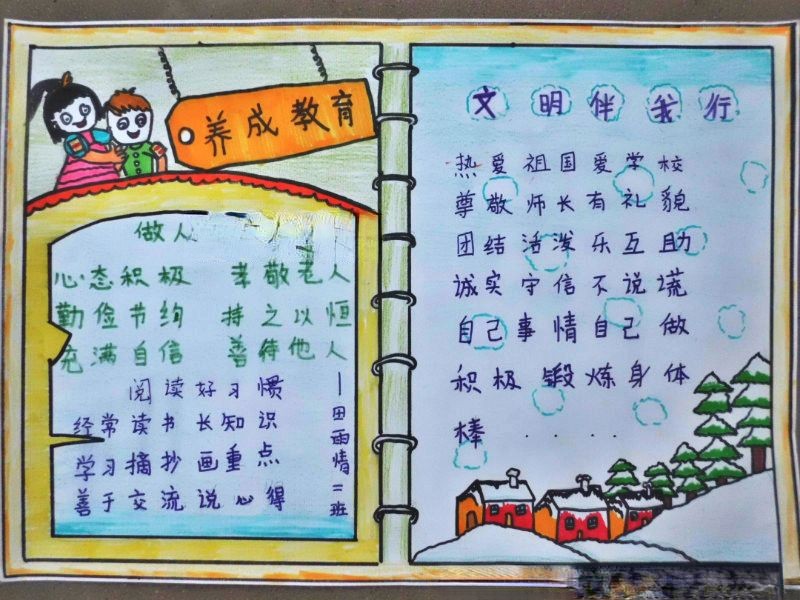 养成教育
做人
心态积极 孝敬老人
勤俭节约 持之以恒
充满自信 善待他人
阅读好习惯
经常读书长知识
学习摘抄画重点
善于交流说心得
一田雨情二班
文明伴我行
热爱祖国爱学校
尊敬师长有礼貌
团结活泼乐互助
诚实守信不说谎
自己事情自己做
积极锻炼身体
棒......